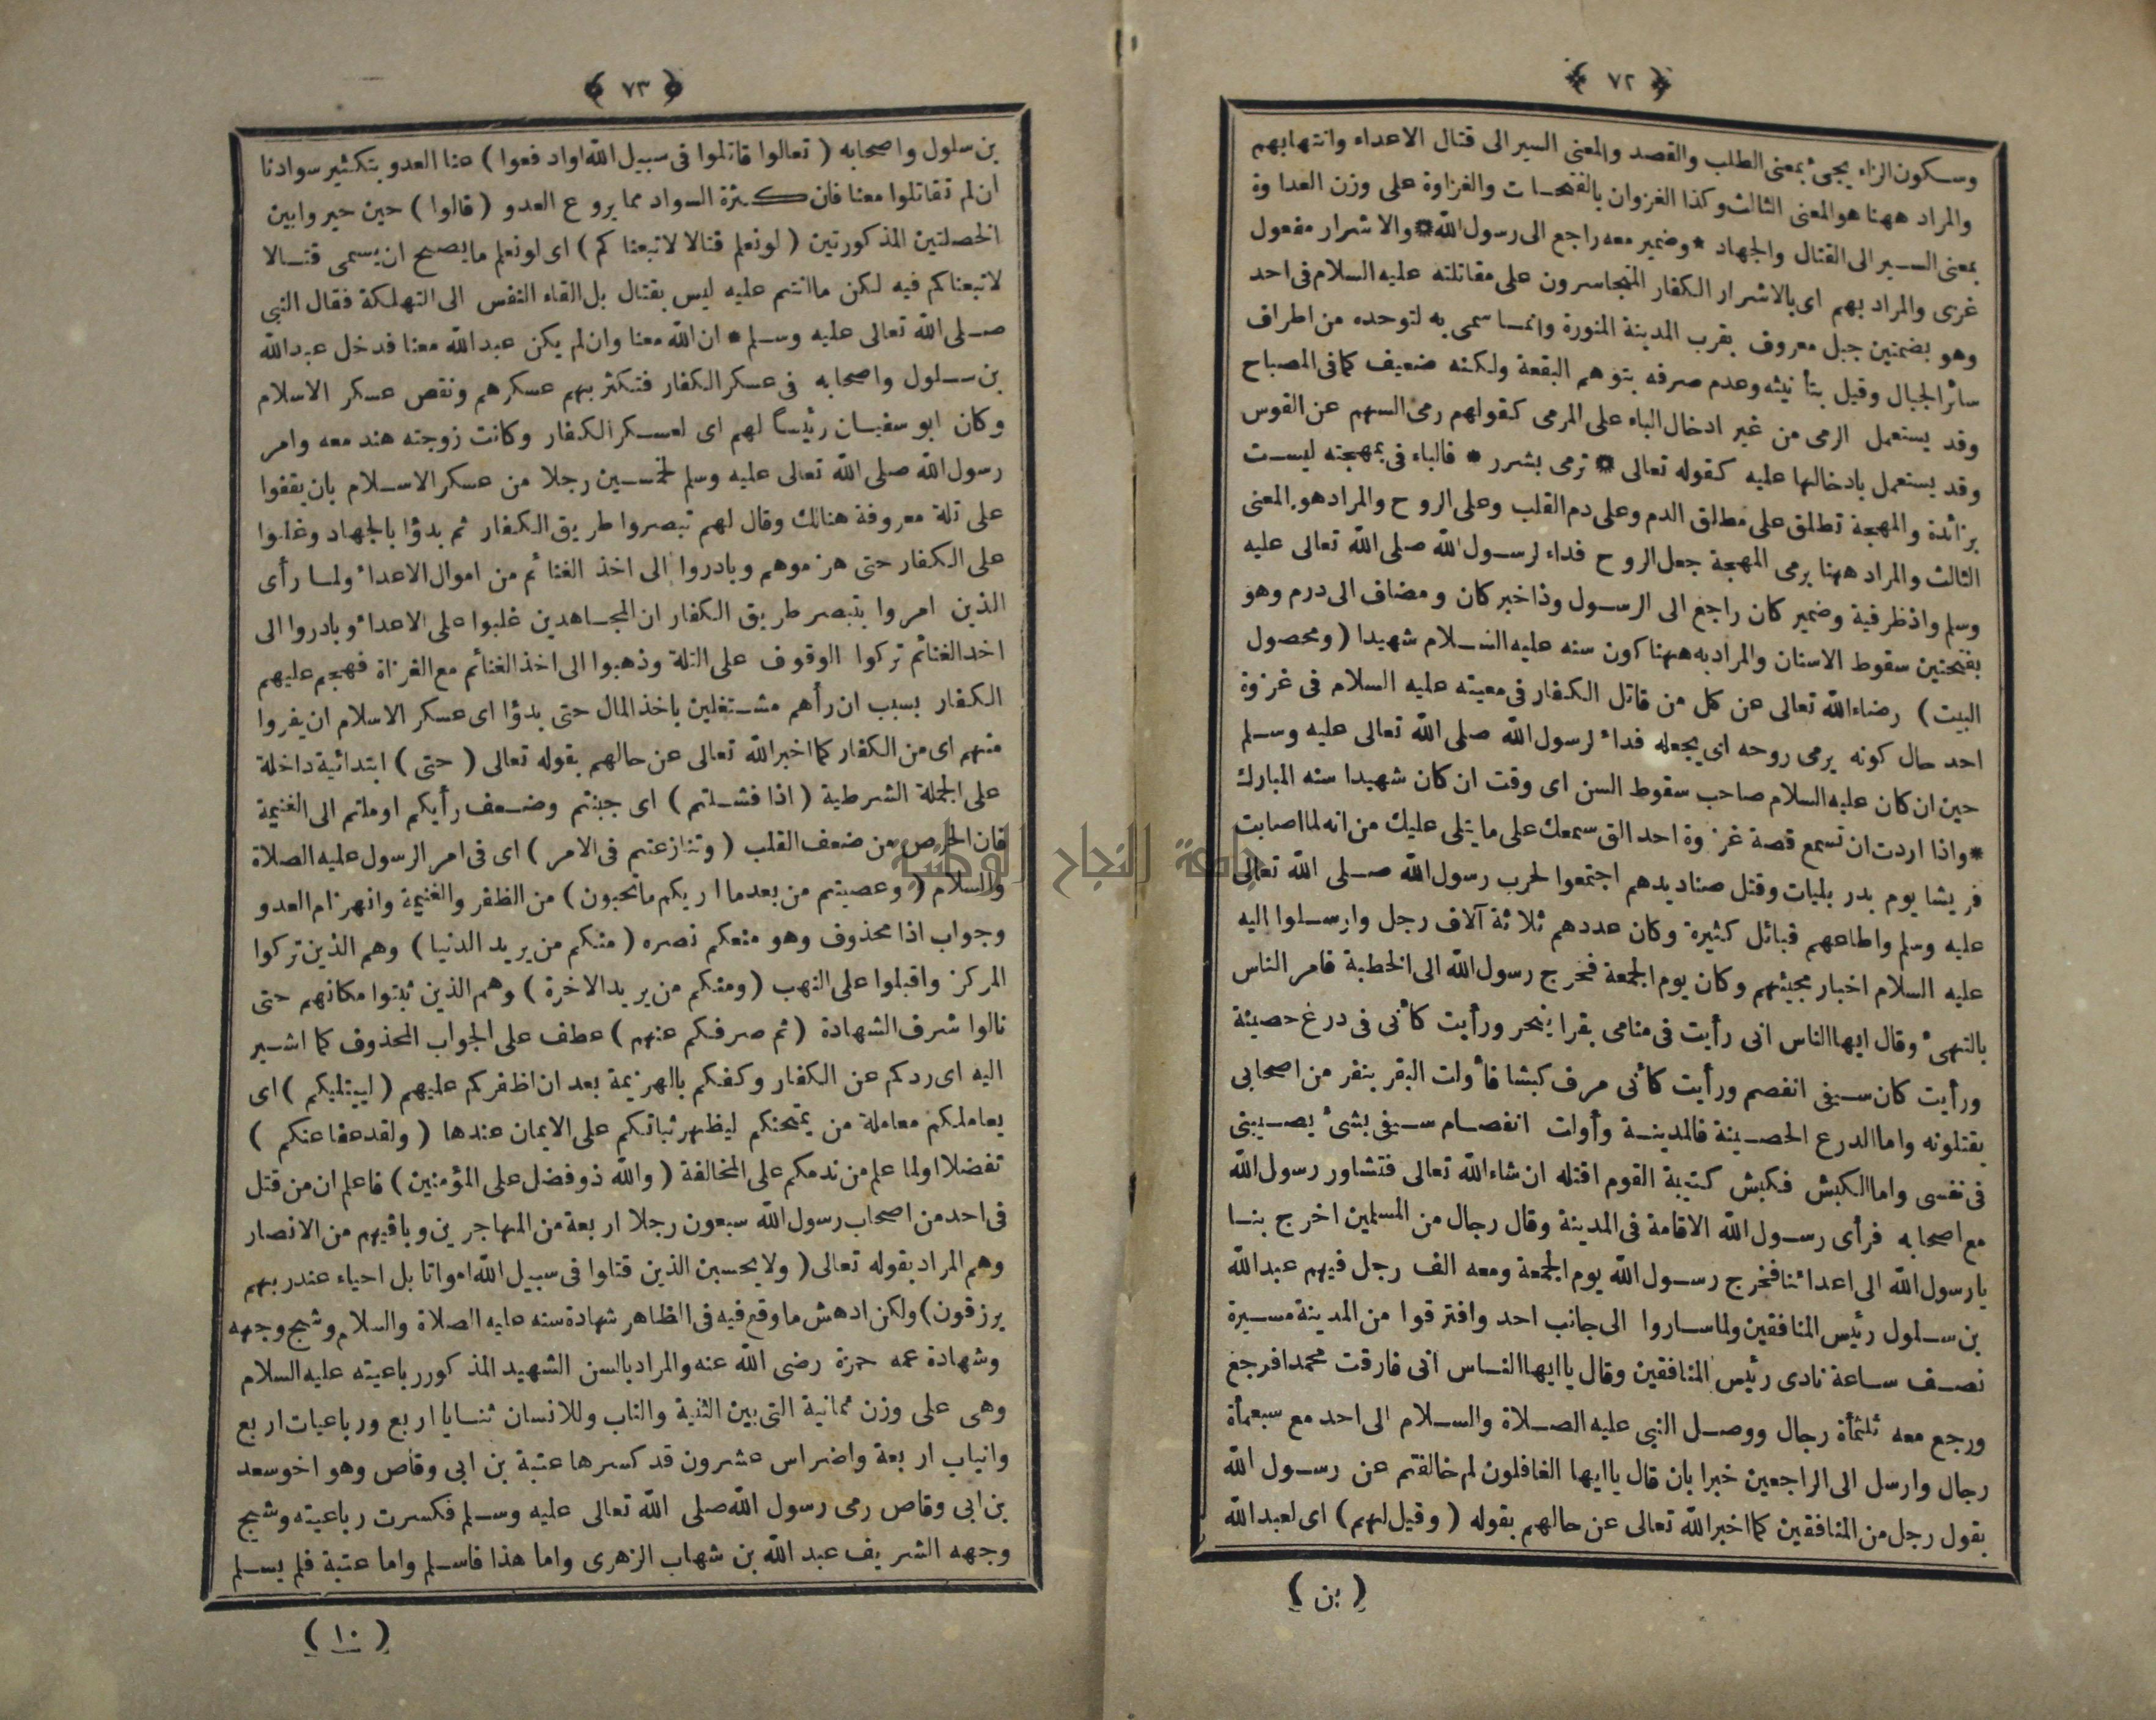 ﴿ ٧٢ ﴾
وسكون الزاء يجئ بمعنى الطلب والقصد والمعنى السير الى قتال الاعداء وانتهابهم
والمراد ههنا هو المعنى الثالث وكذا الغزوان بالفتحات والغزاوة على وزن العداوة
بمعنى السير الى القتال والجهاد * وضمير معه راجع الى رسول الله * والاشرار مفعول
غزى والمراد بهم اى بالاشرار الكفار المتجاسرون على مقاتلته عليه السلام فى احد
وهو بضمتين جبل معروف بقرب المدينة المنورة وانما سمى به لتوحده من اطراف
سائر الجبال وقيل بتأنيثه وعدم صرفه بتوهم البقعة ولكنه ضعيف كما فى المصباح
وقد يستعمل الرمى من غير ادخال الباء على المرمى كقولهم رمى السهم عن القوس
وقد يستعمل بادخالها عليه كقوله تعالى * ترمى بشرر * فالباء فى بمهجته ليست
بزائدة والمهجة تطلق على مطلق الدم وعلى دم القلب وعلى الروح والمراد هو المعنى
الثالث والمراد ههنا برمى المهجة جعل الروح فداء لرسول الله صلى الله تعالى عليه
وسلم واذ ظرفية وضمير كان راجع الى الرسول وذا خبر كان ومضاف الى درم وهو
بفتحتين سقوط الاسنان والمراد به ههنا كون سنه عليه السلام شهيدا ( ومحصول
البيت ) رضاء الله تعالى عن كل من قاتل الكفار فى معيته عليه السلام فى غزوة
احد حال كونه يرمى روحه اى يجعله فداء لرسول الله صلى الله تعالى عليه وسلم
حين ان كان عليه السلام صاحب سقوط السن اى وقت ان كان شهيدا سنه المبارك
* واذا اردت ان تسمع قصة غزوة احد الق سمعك على ما يتلى عليك من انه لما اصابت
قريشا يوم بدر بليات وقتل صناديدهم اجتمعوا لحرب رسول الله صلى الله تعالى
عليه وسلم واطاعهم قبائل كثيرة وكان عددهم ثلاثة آلاف رجل وارسلوا اليه
عليه السلام اخبار مجيئهم وكان يوم الجمعة فخرج رسول الله الى الخطبة فامر الناس
بالتهئ وقال ايها الناس انى رأيت فى منامى بقرا ينحر ورأيت كأنى فى درع حصينة
ورأيت كان سيفى انفصم ورأيت كأنى مرف كبشا فأولت البقر بنفر من اصحابى
يقتلونه واما الدرع الحصينة فالمدينة وأولت انفصام سيفى بشئ يصيبنى
فى نفسى واما الكبش فكبش كتيبة القوم اقتله ان شاء الله تعالى فتشاور رسول الله
مع اصحابه فرأى رسول الله الاقامة فى المدينة وقال رجال من المسلمين اخرج بنا
يا رسول الله الى اعدائنا فخرج رسول الله يوم الجمعة ومعه الف رجل فيهم عبد الله
بن سلول رئيس المنافقين ولما ساروا الى جانب احد وافترقوا من المدينة مسيرة
نصف ساعة نادى رئيس المنافقين وقال يا ايها الناس انى فارقت محمدا فرجع
ورجع معه ثلثمأة رجال ووصل النبى عليه الصلاة والسلام الى احد مع سبعمأة
رجال وارسل الى الراجعين خبرا بان قال يا ايها الغافلون لم خالفتم عن رسول الله
بقول رجل من المنافقين كما اخبر الله تعالى عن حالهم بقوله ( وقيل لهم ) اى لعبد الله
( بن )
﴿ ٧٣ ﴾
بن سلول واصحابه ( تعالوا قاتلوا فى سبيل الله او ادفعوا ) عنا العدو بتكثير سوادنا
ان لم تقاتلوا معنا فان كثرة السواد مما يروع العدو ( قالوا ) حين خيروا بين
الخصلتين المذكورتين ( لو نعلم قتالا لاتبعناكم ) اى لو نعلم ما يصح ان يسمى قتالا
لاتبعناكم فيه لكن ما انتم عليه ليس بقتال بل القاء النفس الى التهلكة فقال النبى
صلى الله تعالى عليه وسلم * ان الله معنا وان لم يكن عبد الله معنا فدخل عبد الله
بن سلول واصحابه فى عسكر الكفار فتكثر بهم عسكرهم ونقص عسكر الاسلام
وكان ابو سفيان رئيسا لهم اى لعسكر الكفار وكانت زوجته هند معه وامر
رسول الله صلى الله تعالى عليه وسلم لخمسين رجلا من عسكر الاسلام بان يقفوا
على تلة معروفة هنالك وقال لهم تبصروا طريق الكفار ثم بدؤا بالجهاد وغلبوا
على الكفار حتى هزموهم وبادروا الى اخذ الغنائم من اموال الاعداء ولما رأى
الذين امروا بتبصر طريق الكفار ان المجاهدين غلبوا على الاعداء وبادروا الى
اخد الغنائم تركوا الوقوف على التلة وذهبوا الى اخذ الغنائم مع الغزاة فهجم عليهم
الكفار بسبب ان رأهم مشتغلين باخذ المال حتى بدؤا اى عسكر الاسلام ان يفروا
منهم اى من الكفار كما اخبر الله تعالى عن حالهم بقوله تعالى ( حتى ) ابتدائية داخلة
على الجملة الشرطية ( اذا فشلتم ) اى جبنتم وضعف رأيكم او ملتم الى الغنيمة
فان الحرص من ضعف القلب ( وتنازعتم فى الامر ) اى فى امر الرسول عليه الصلاة
والسلام ( وعصيتم من بعد ما اريكم ما تحبون ) من الظفر والغنيمة وانهزام العدو
وجواب اذا محذوف وهو منعكم نصره ( منكم من يريد الدنيا ) وهم الذين تركوا
المركز واقبلوا على النهب ( ومنكم من يريد الاخرة ) وهم الذين ثبتوا مكانهم حتى
نالوا شرف الشهادة ( ثم صرفكم عنهم ) عطف على الجواب المحذوف كما اشير
اليه اى ردكم عن الكفار وكفكم بالهزيمة بعد ان اظفركم عليهم ( ليبتليكم ) اى
يعاملكم معاملة من يمتحنكم ليظهر ثباتكم على الايمان عندها ( ولقد عفا عنكم )
تفضلا او لما علم من ندمكم على المخالفة ( والله ذو فضل على المؤمنين ) فاعلم ان من قتل
فى احد من اصحاب رسول الله سبعون رجلا اربعة من المهاجرين وباقيهم من الانصار
وهم المراد بقوله تعالى ( ولا يحسبن الذين قتلوا فى سبيل الله امواتا بل احياء عند ربهم
يرزقون ) ولكن ادهش ما وقع فيه فى الظاهر شهادة سنه عليه الصلاة والسلام وشج وجهه
وشهادة عمه حمزة رضى الله عنه والمراد بالسن الشهيد المذكور رباعيته عليه السلام
وهى على وزن ثمانية التى بين الثنية والناب وللانسان ثنايا اربع ورباعيات اربع
وانياب اربعة واضراس عشرون قد كسرها عتبة بن ابى وقاص وهو اخو سعد
بن ابى وقاص رمى رسول الله صلى الله تعالى عليه وسلم فكسرت رباعيته وشج
وجهه الشريف عبد الله بن شهاب الزهرى واما هذا فاسلم واما عتبة فلم يسلم
( ١٠ )
جامعة النجاح الوطنية